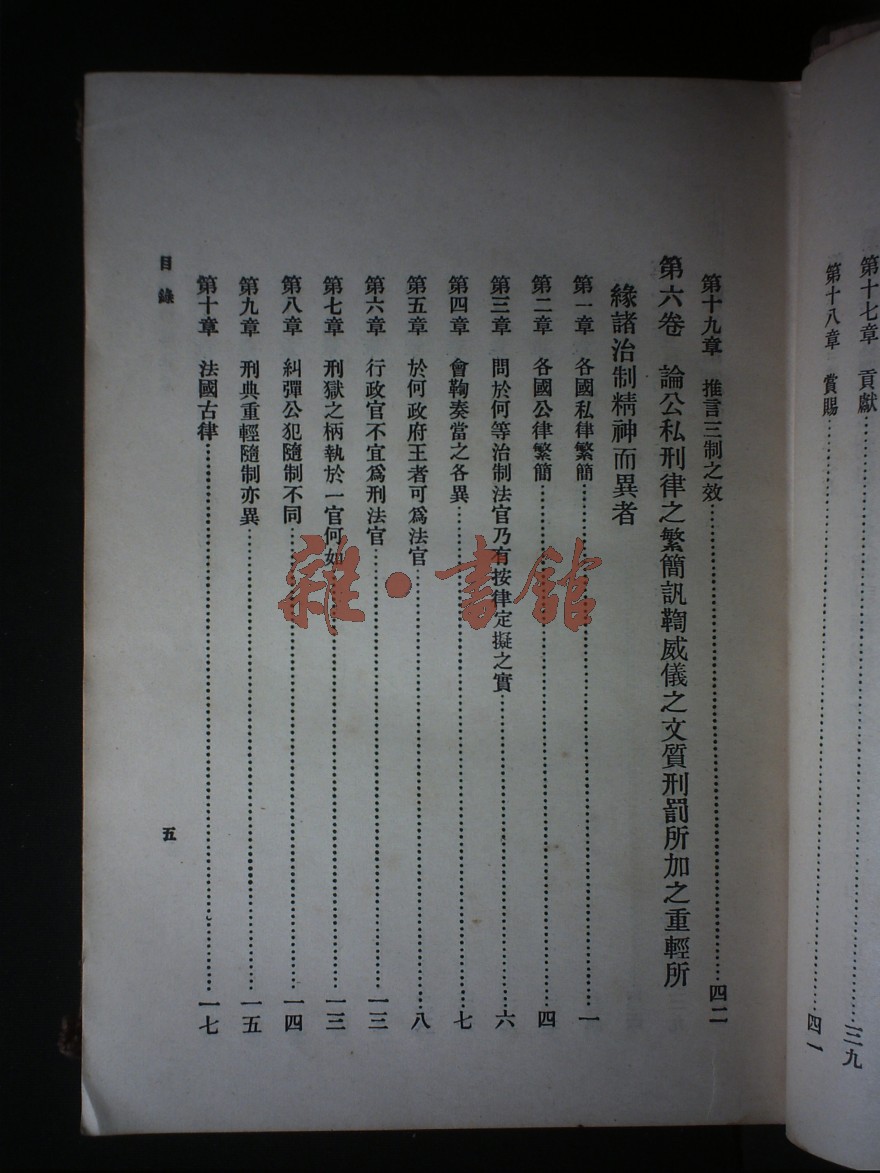 第十七章　貢獻……三九
第十八章　賞賜……四一
第十九章　推言三制之效……四二
第六卷　論公私刑律之繁簡訊鞫威儀之文質刑罰所加之重輕所
緣諸治制精神而異者
第一章　各國私律繁簡……一
第二章　各國公律繁簡……四
第三章　問於何等治制法官乃有按律定擬之實……六
第四章　會鞫奏當之各異……七
第五章　於何政府王者可爲法官……八
第六章　行政官不宜爲刑法官……一三
第七章　刑獄之柄執於一官何如……一三
第八章　糾彈公犯隨制不同……一四
第九章　刑典重輕隨制亦異……一五
第十章　法國古律……一七
目錄
五
雜·書館